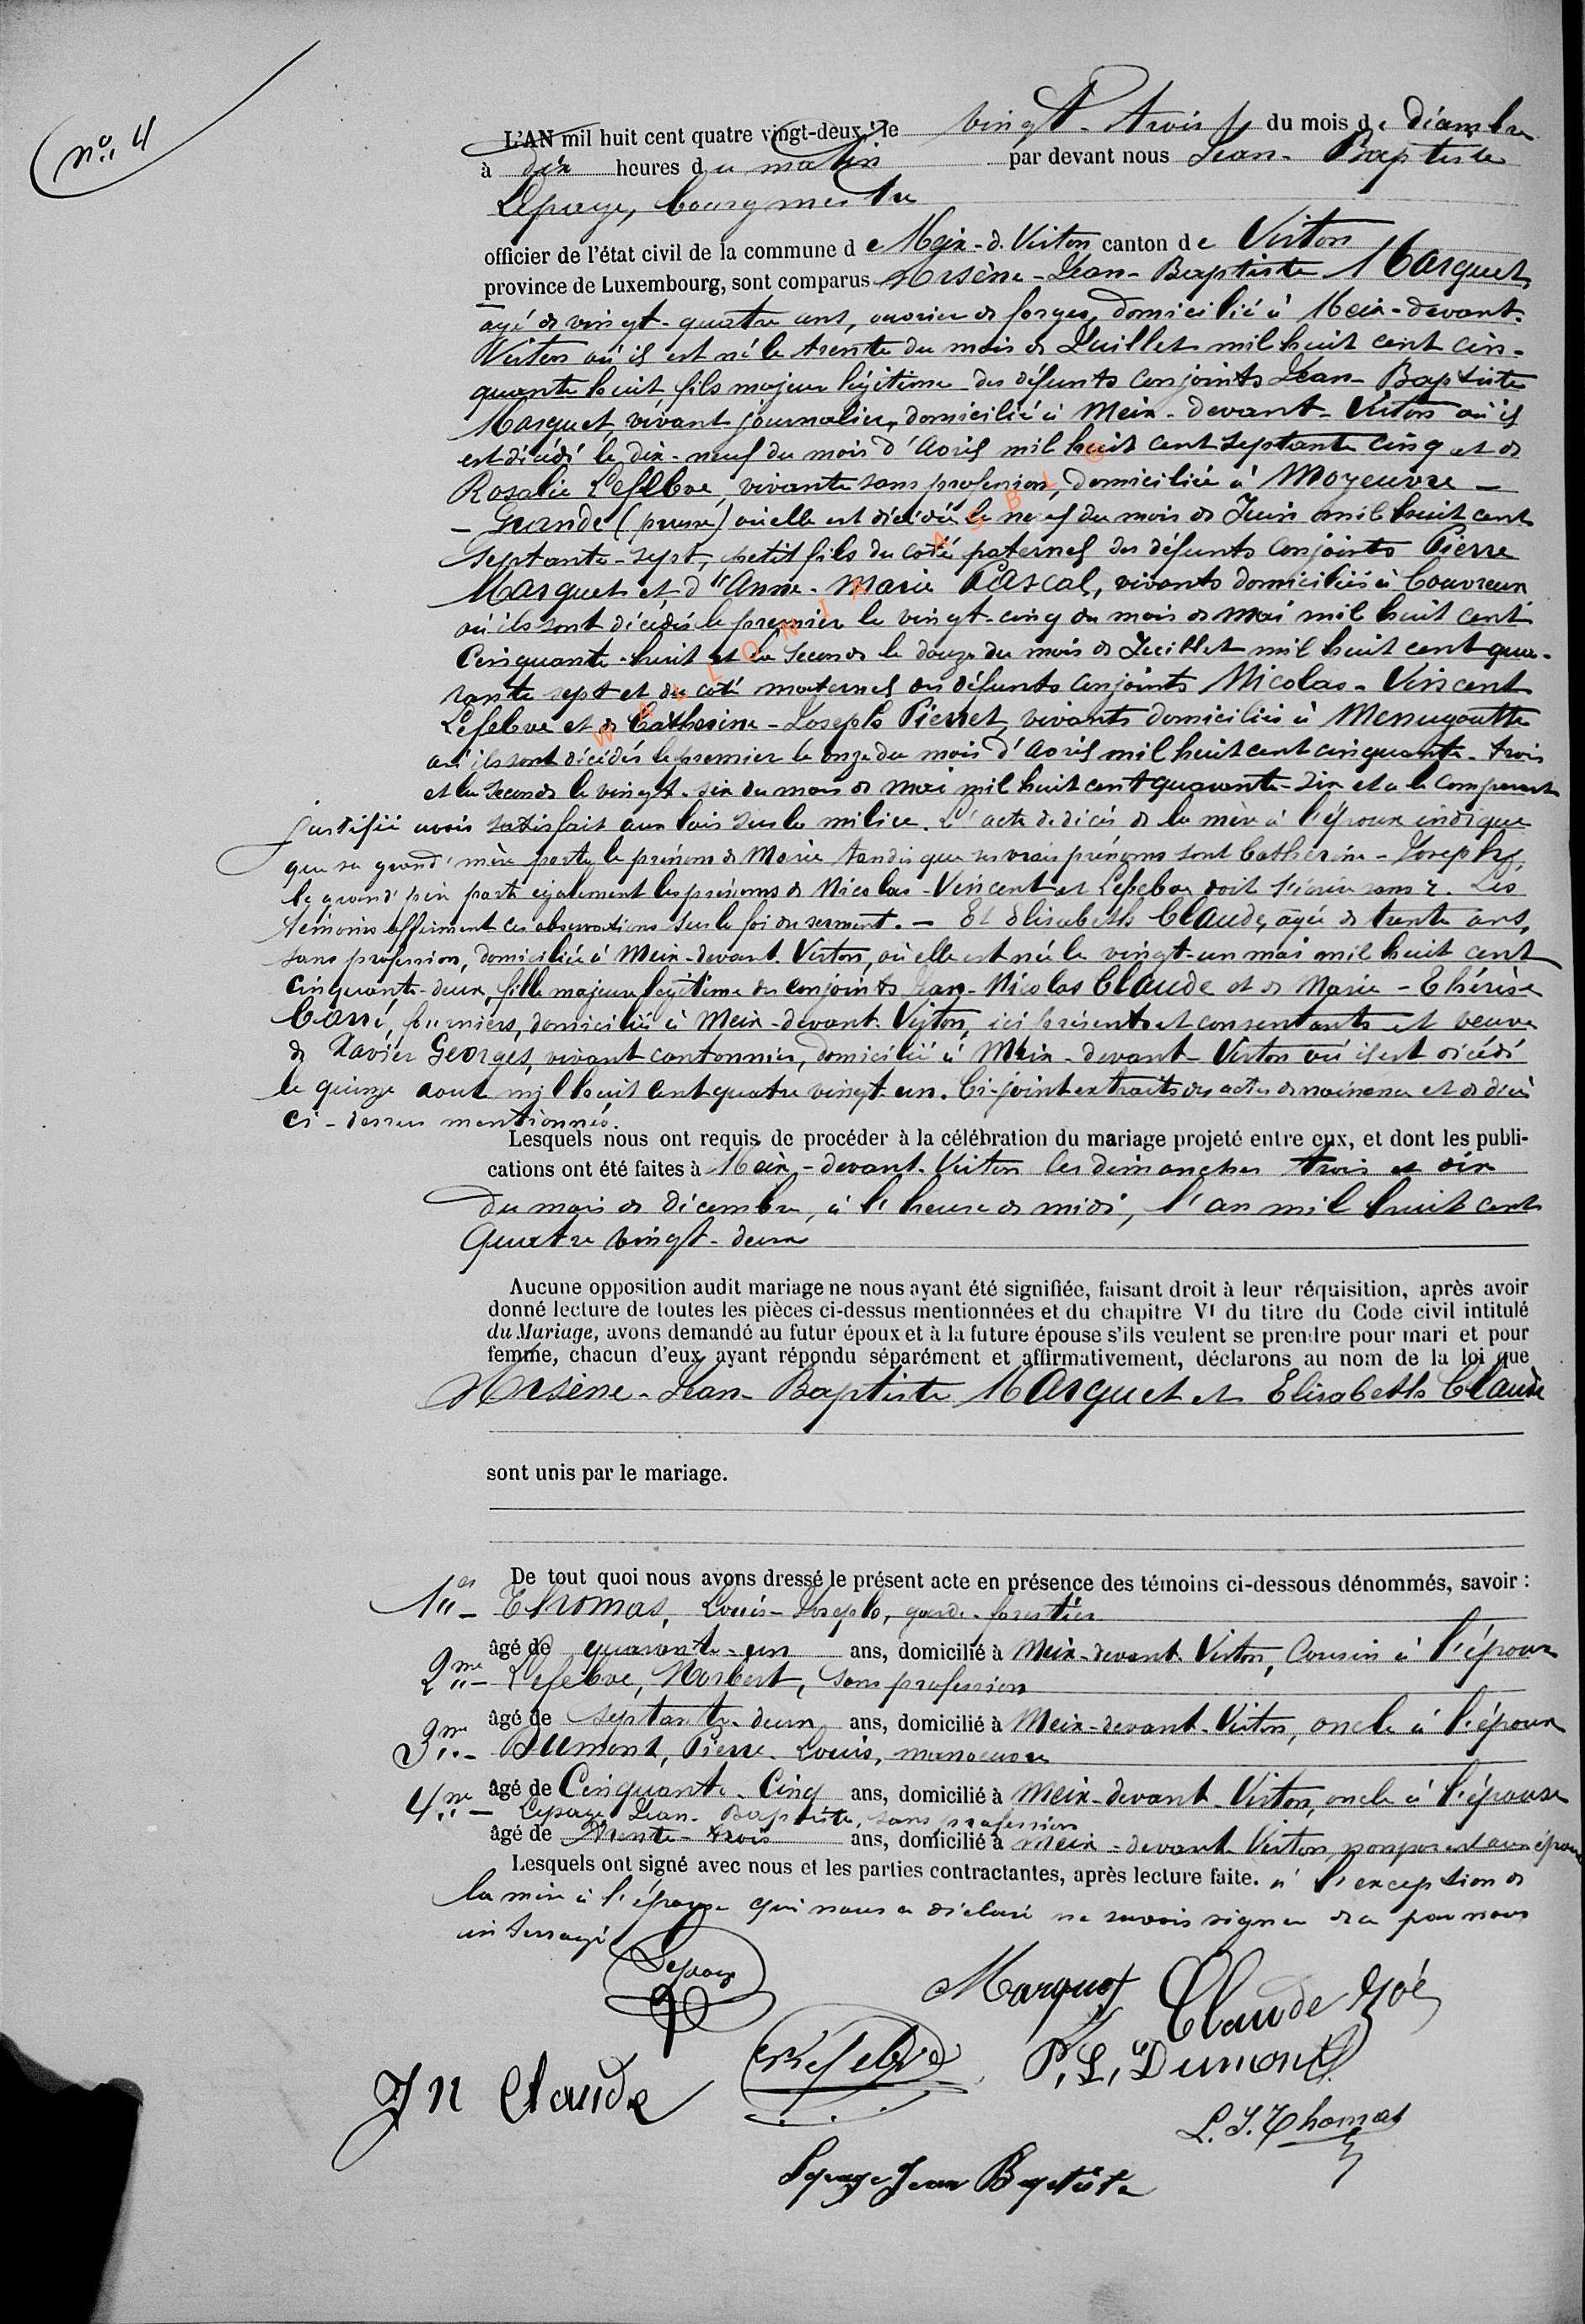 n° 4
L'AN mil huit cent quatre vingt-deux, le vingt-trois du mois de décembre
à dix heures du matin par devant nous Jean-Baptiste
Lepage, bourgmestre
officier de l'état civil de la commune de Meix-d.-Virton canton de Virton
province de Luxembourg, sont comparus Arsène-Jean-Baptiste Marquet,
âgé de vingt-quatre ans, ouvrier de forges, domicilié à Meix-devant-
Virton où il est né le trente du mois de Juillet mil huit cent cin-
quante huit, fils majeur légitime des défunts conjoints Jean-Baptiste
Marquet, vivant journalier, domicilié à Meix-devant-Virton où il
est décédé le dix-neuf du mois d'Avril mil huit cent septante cinq et de
Rosalie Lefebvre, vivante sans profession, domiciliée à Moyeuvre-
-Grande (prusse) où elle est décédée le neuf du mois de Juin mil huit cent
septante-sept, petit fils du coté paternel des défunts conjoints Pierre
Marquet et d'Anne-Marie Pascal, vivants domiciliés à Couvreux
où ils sont décédés le premier le vingt-cinq du mois de mai mil huit cent
Cinquante-huit et la seconde le douze du mois de Juillet mil huit cent qua-
rante sept et du coté maternel des défunts conjoints Nicolas-Vincent
Lefebve et de Catherine-Joseph Pierret, vivants domiciliés à Menugoutte
où ils sont décédés le premier le onze du mois d'Avril mil huit cent cinquante-trois
et la seconde le vingt-six du mois de Mai mil huit cent quarante-six et a le comparant
justifié avoir satisfait aux lois sur la milice. L'acte de décès de la mère à l'époux indique
que sa grand'mère porte le prénom de Marie tandis que ses vrais prénoms sont Catherine-Joseph,
le grand'père porte également les prénoms de Nicolas-Vincent et Lefebve doit s'écrire sans r. Les
témoins affirment ces observations sur la foi du serment. - Et Elisabeth Claude, âgée de trente ans,
sans profession, domiciliée à Meix-devant-Virton, où elle est née le vingt-un mai mil huit cent
Cinquante-deux, fille majeure légitime des conjoints Jean-Nicolas Claude et de Marie-Thérèse
Carré, fermiers, domiciliés à Meix-devant-Virton, ici présents et consentants et veuve
de Xavier Georges, vivant cantonnier, domicilié à Meix-devant-Virton où il est décédé
le quinze aout mil huit cent quatre vingt-un. Ci-joint extraits des actes de naissance et de décès
ci-dessus mentionnés.
Lesquels nous ont requis de procéder à la célébration du mariage projeté entre eux, et dont les publi-
cations ont été faites à Meix-devant-Virton les dimanches trois et dix
du mois de décembre, à l'heure de midi, l'an mil huit cent
quatre vingt-deux
Aucune opposition audit mariage ne nous ayant été signifiée, faisant droit à leur réquisition, après avoir
donné lecture de toutes les pièces ci-dessus mentionnées et du chapitre VI du titre du Code civil intitulé
du Mariage, avons demandé au futur époux et à la future épouse s'ils veulent se prendre pour mari et pour
femme, chacun d'eux ayant répondu séparément et affirmativement, déclarons au nom de la loi que
Arsène-Jean-Baptiste Marquet et Elisabeth Claude
sont unis par le mariage.
De tout quoi nous avons dressé le présent acte en présence des témoins ci-dessous dénommés, savoir :
1er - Thomas, Louis-Joseph, garde-forestier
âgé de quarante-un ans, domicilié à Meix-devant-Virton, Cousin à l'époux
2me - Lefebve, Norbert, sans profession
âgé de septante-deux ans, domicilié à Meix-devant-Virton, oncle à l'époux
3me - Dumont, Pierre-Louis, manoeuvre
âgé de Cinquante-Cinq ans, domicilié à Meix-devant-Virton, oncle à l'épouse
4me - Lepage Jean-Baptiste, sans profession
âgé de trente-trois ans, domicilié à Meix-devant-Virton, non parent aux époux
Lesquels ont signé avec nous et les parties contractantes, après lecture faite. à l'exception de
la mère à l'épouse qui nous a déclaré ne savoir signer de ce par nous
interrogé
Lepage
Marquet Claude
Lefebve P. L. Dumont
J N Claude
L. J. Thomas
Lepage Jean Baptiste
WALLONIA ASBL ©